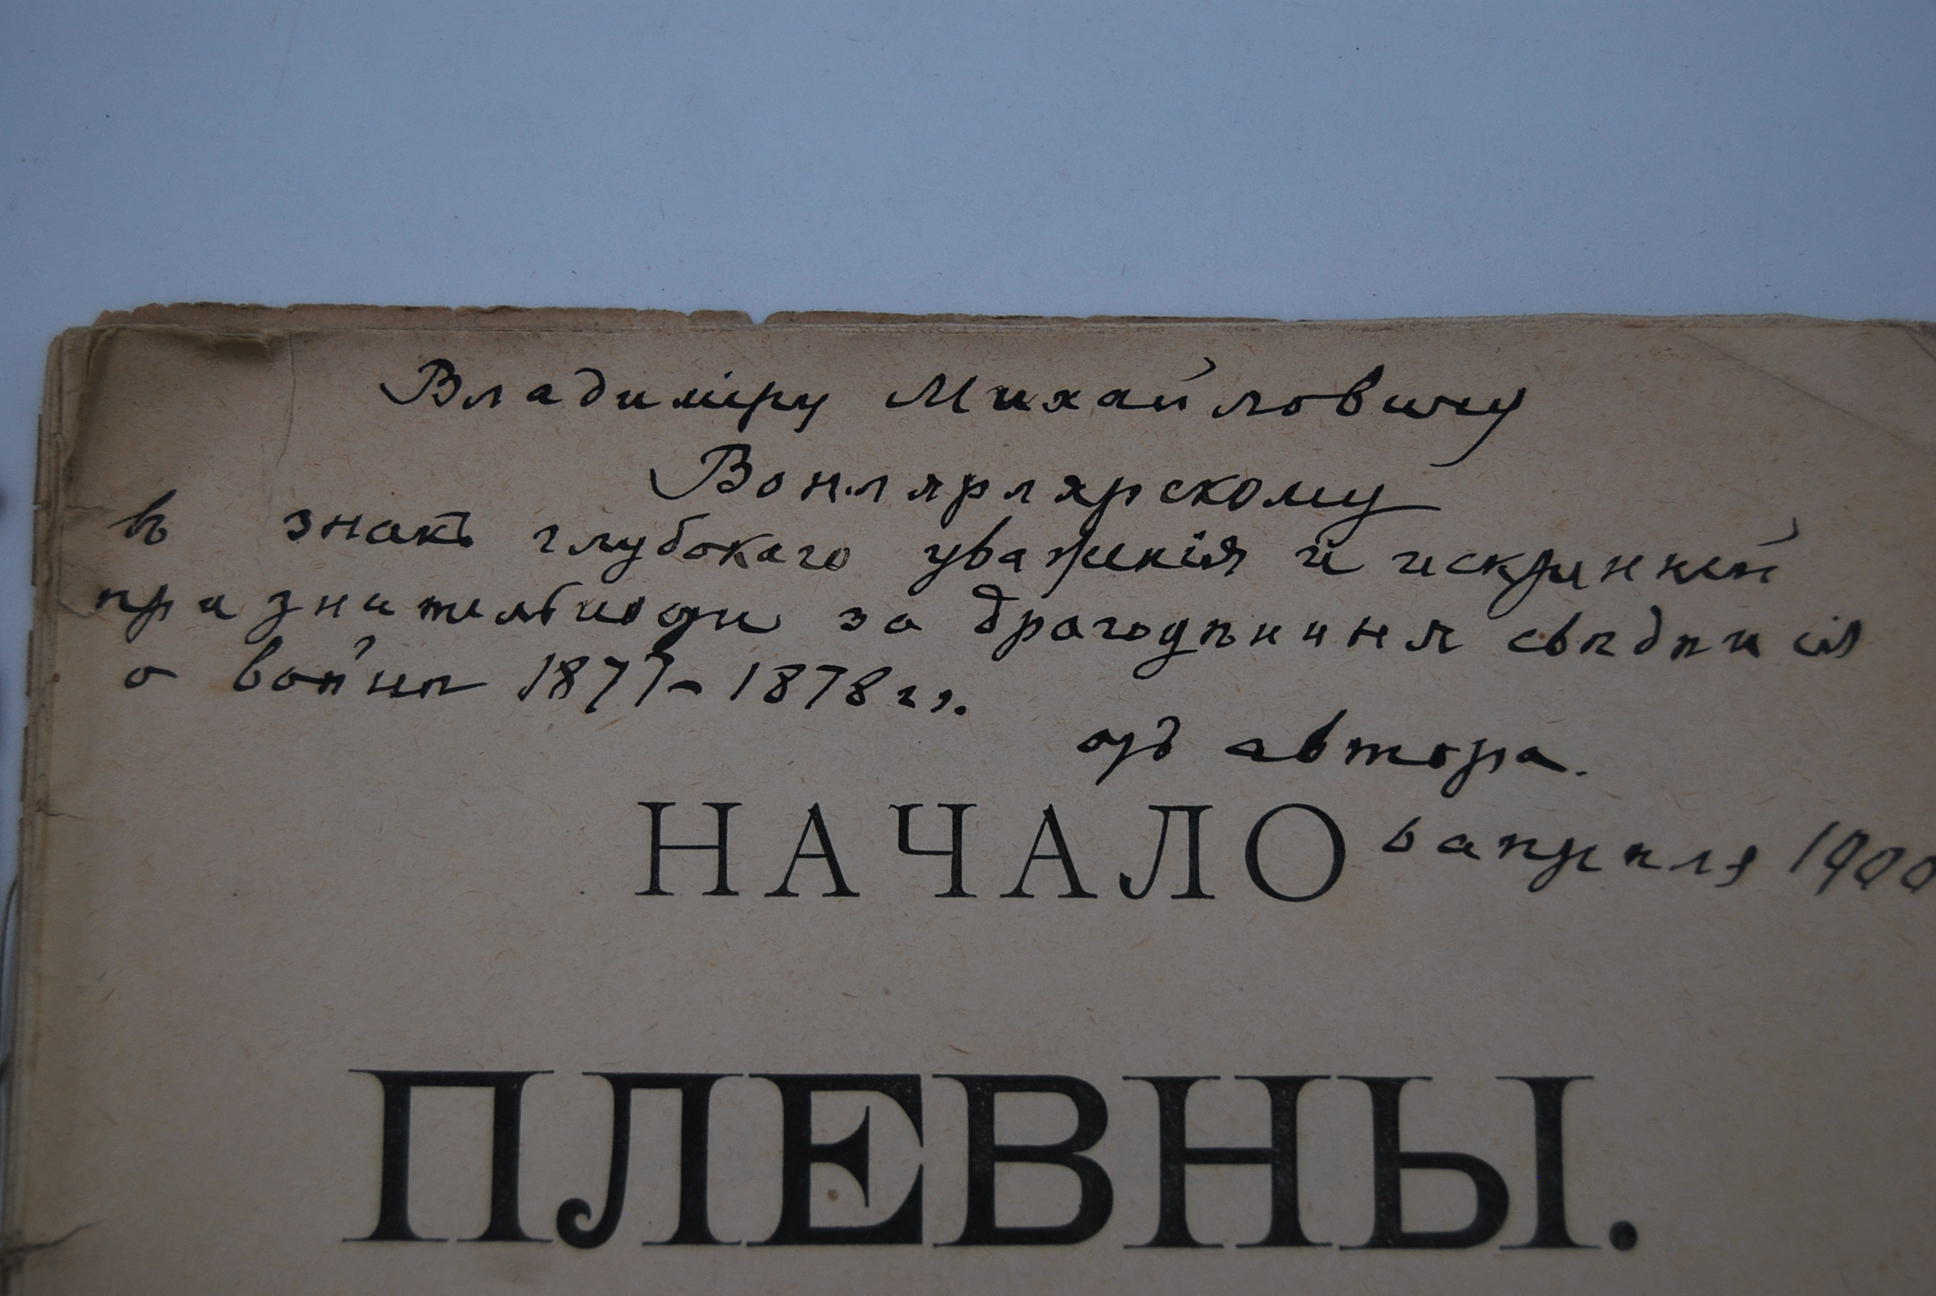 Владиміру Михайловичу
Вонлярлярскому
въ знакъ глубокаго уваженія и искренней
признательности за драгоцѣнныя свѣдѣнія
о войнѣ 1877-1878 гг.
отъ автора.
6 апрѣля 1900
НАЧАЛО
ПЛЕВНЫ.